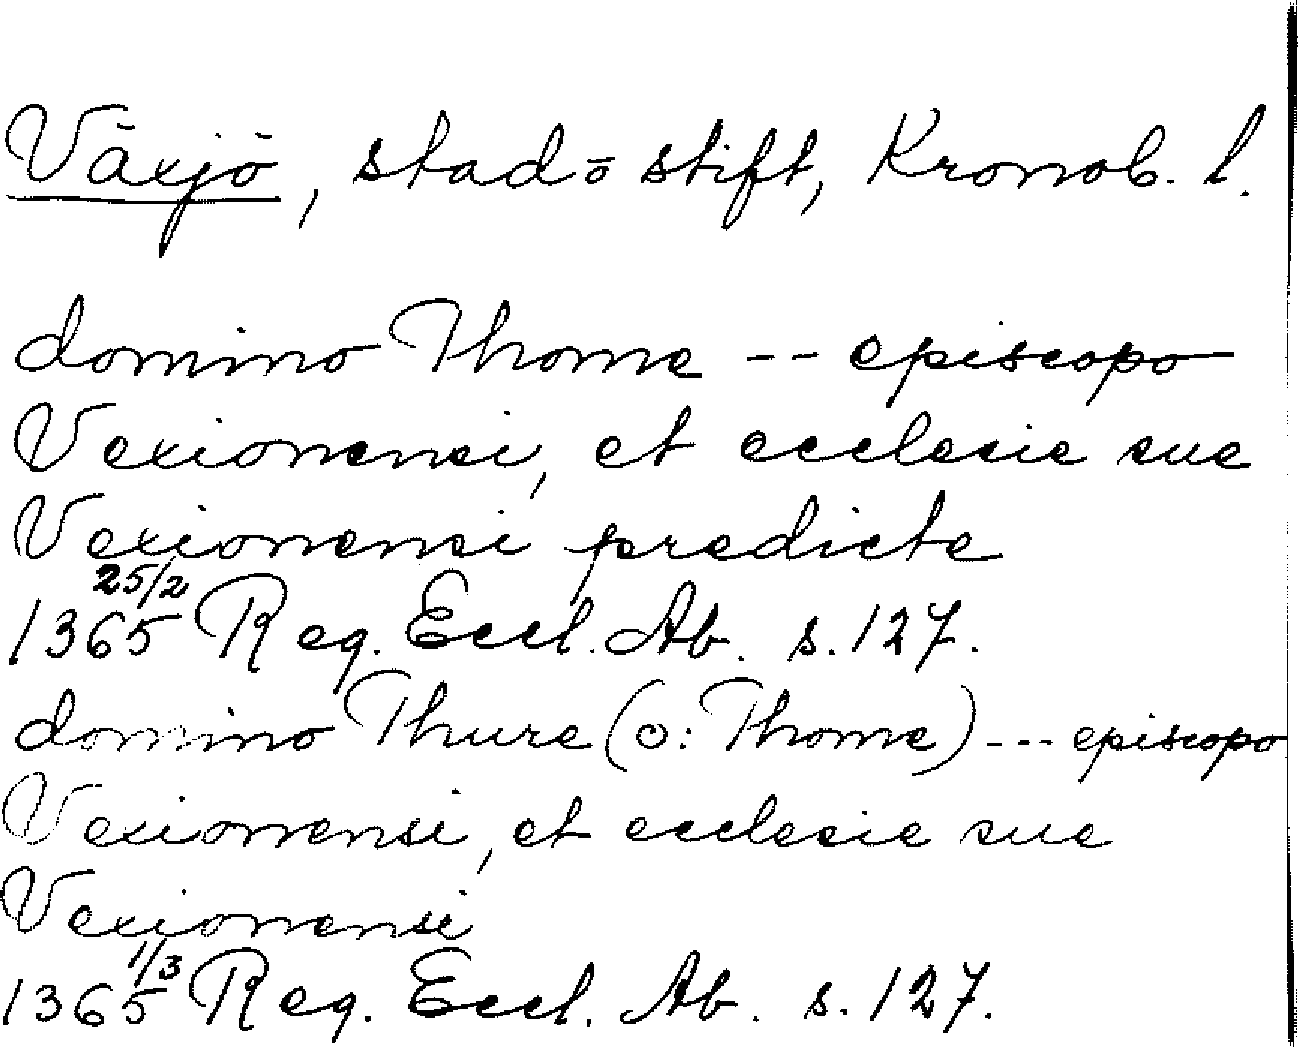 Växjö, stad o stift, Kronob. l.
domino Thome -- episcopo
Vexionensi, et ecclesie sue
Vexionensi predicte
1365 25/2 Reg. Eccl. Ab. s. 127.
domino Thure (ɔ: Thome) --- episcopo
Vexionensi, et ecclesie sue
Vexionensi
1365 1/3 Reg. Eccl. Ab. s. 127.